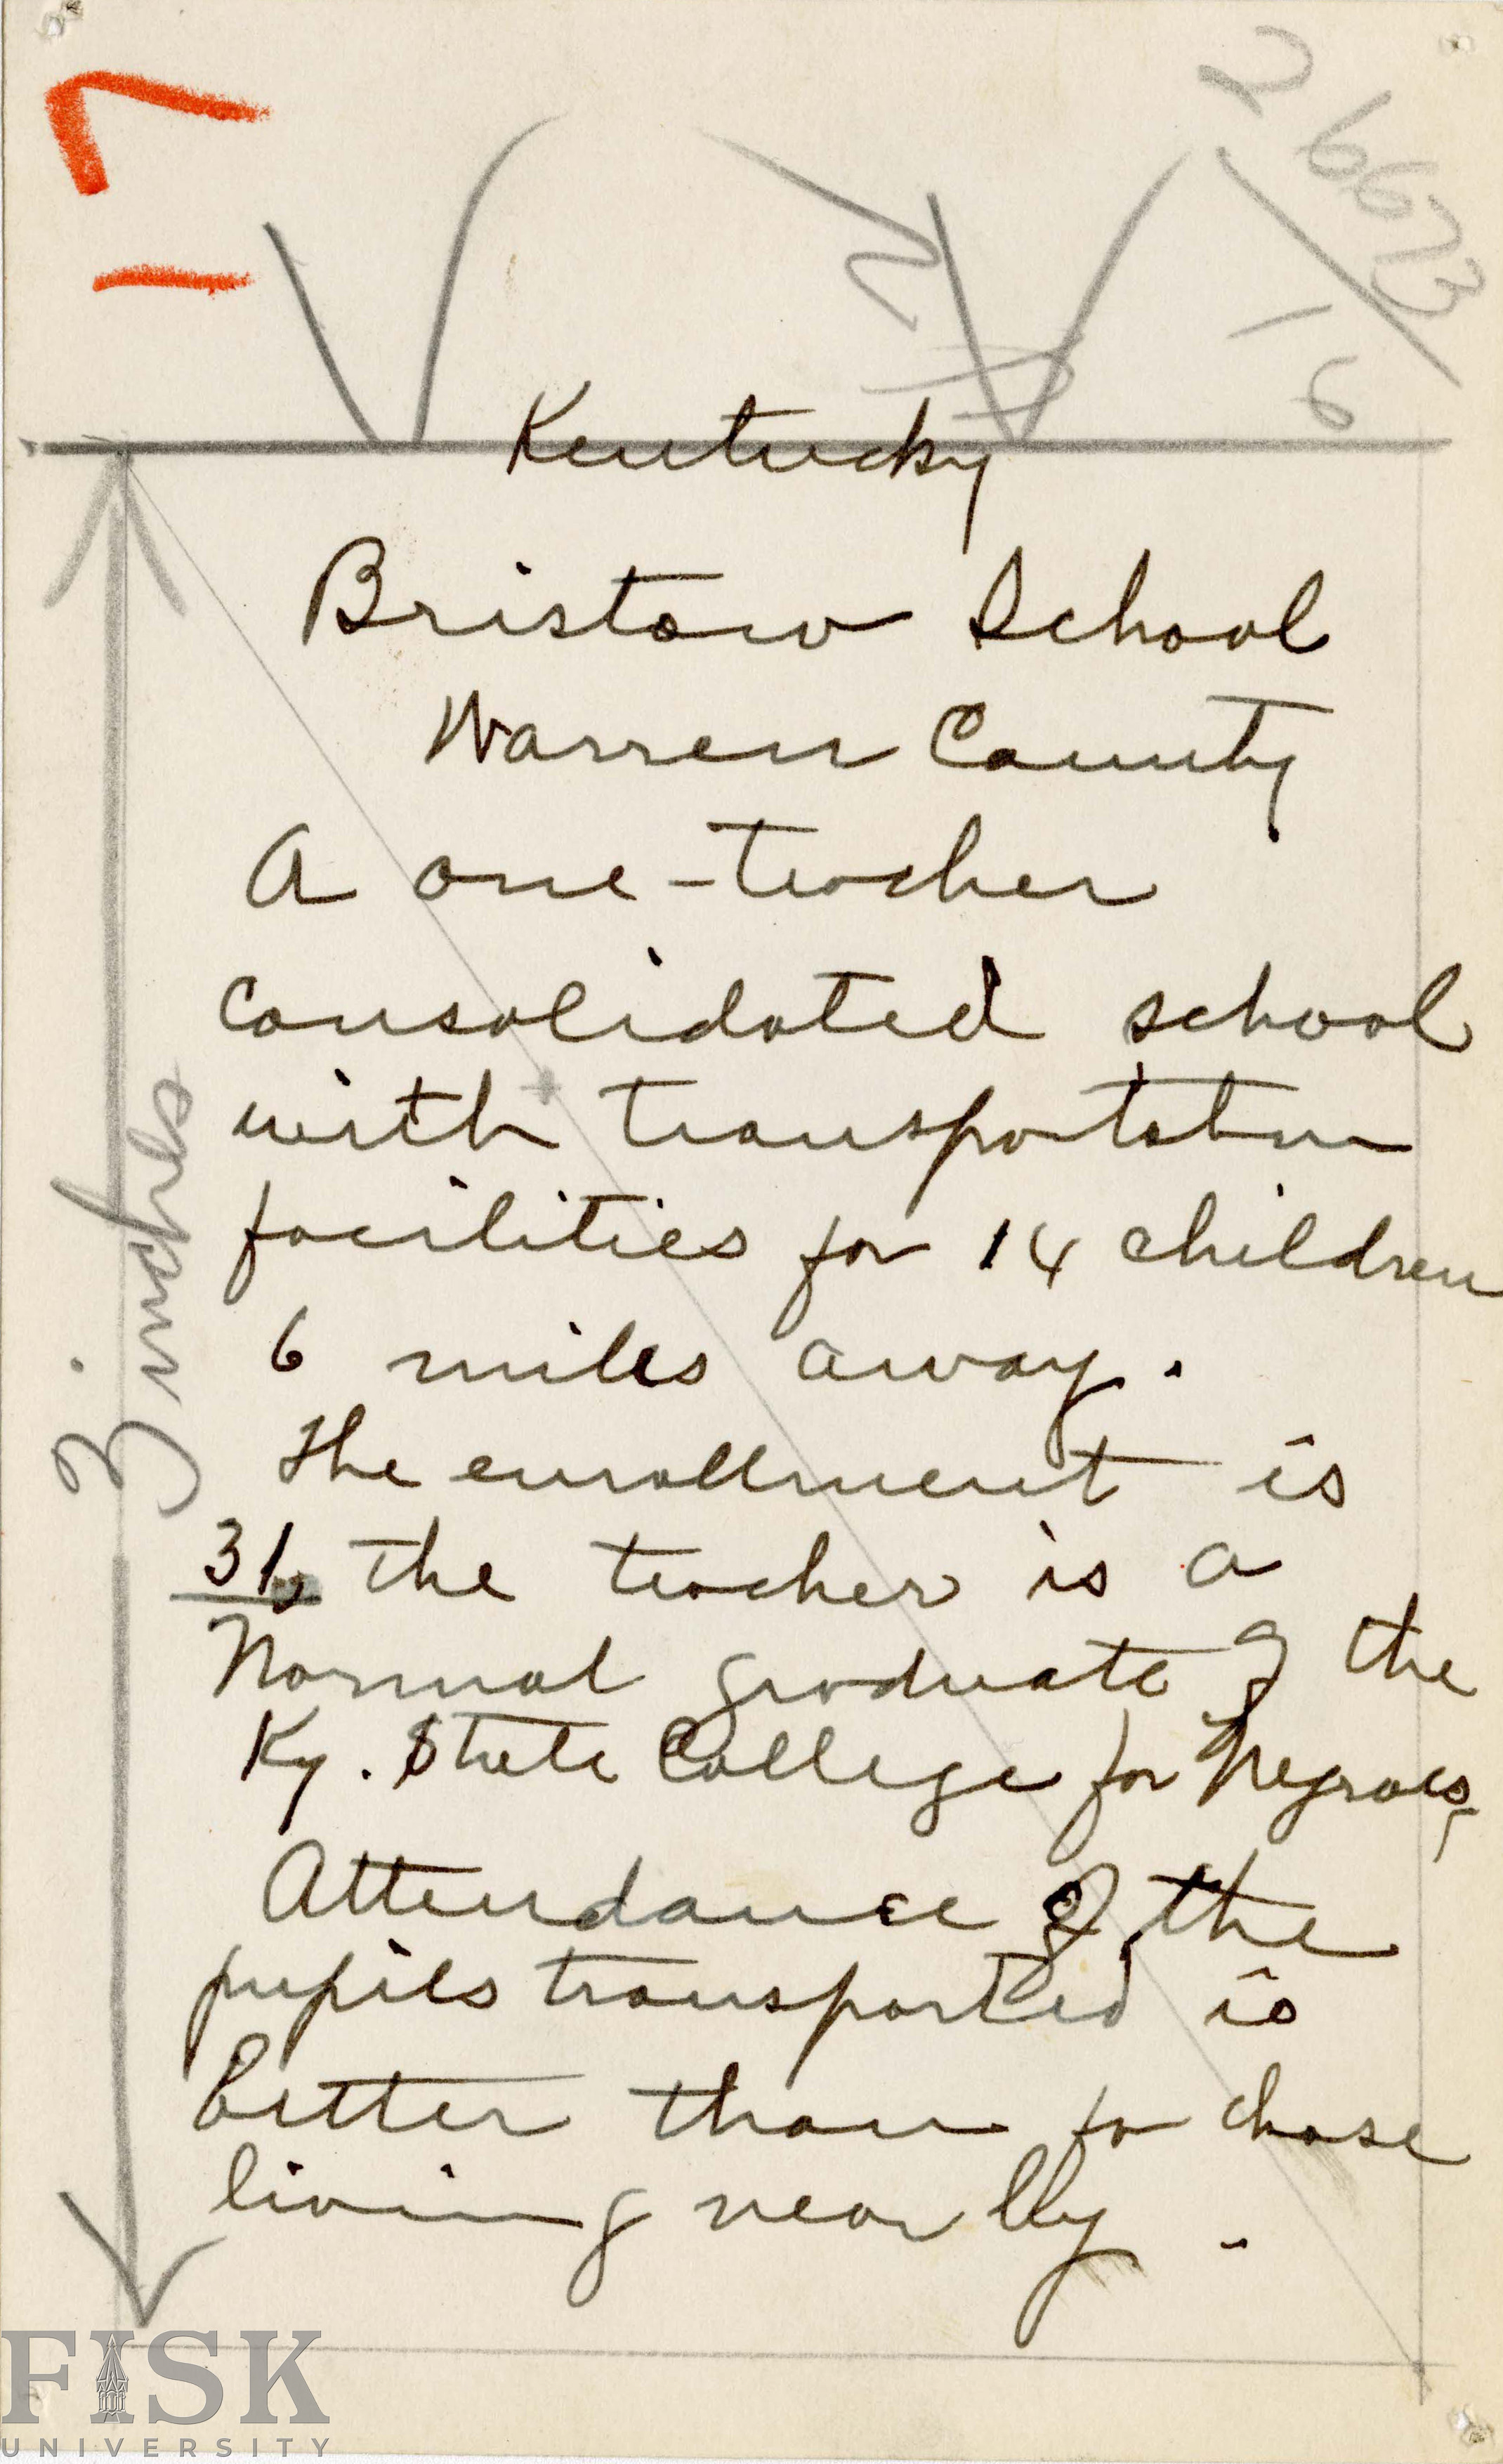 26673
16
Kentucky
Bristow School
Warren County
A one-teacher
consolidated school
with transportation
facilities for 14 children
6 miles away.
The enrollment is
31, the teacher is a
Normal graduate of the
Ky. State College for Negroes,
Attendance of the
pupils transported is
better than for those
living near by.
3 inches
FISK
UNIVERSITY